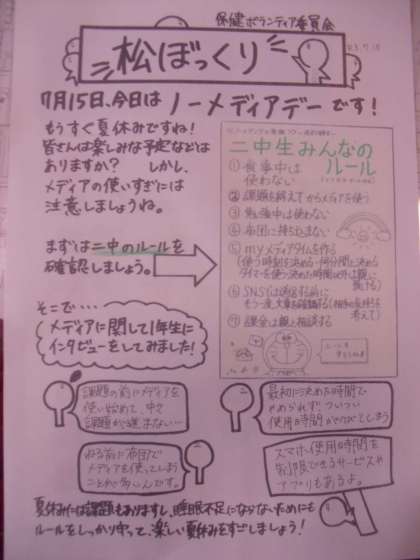 保健ボランティア委員会
松ぼっくり
7月15日、今日は ノーメディアデーです!
もうすぐ夏休みですね!
皆さんは楽しみな予定などは
ありますか? しかし、
メディアの使いすぎには
注意しましょうね。
まずは二中のルールを
確認しましょう。
二中生みんなの
ルール
①食事中は
使わない
②課題を終えてからメディアを使う
③勉強中は使わない
④布団に持ち込まない
⑤myメディアタイムを作る
(使う時刻を決める・何分間と決める
タイマーを使う・決めた時間以外は親に
預ける)
⑥SNSは送信する前に
もう一度文章を確認する(相手の気持ちを
考えて)
⑦課金は親と相談する
そこで…
メディアに関して1年生に
インタビューをしてみました!
課題の前にメディアを
使い始めて、中々
課題が進まない…
最初に決めた時間で
やめられず、ついつい
使用時間がのびてしまう
ねる前に布団で
メディアを使ってしまう
ことが多いんです。
スマホ使用時間を
制限できるサービスや
アプリもあるよ。
夏休みには課題もありますし、睡眠不足にならないためにも
ルールをしっかり守って、楽しい夏休みをすごしましょう!